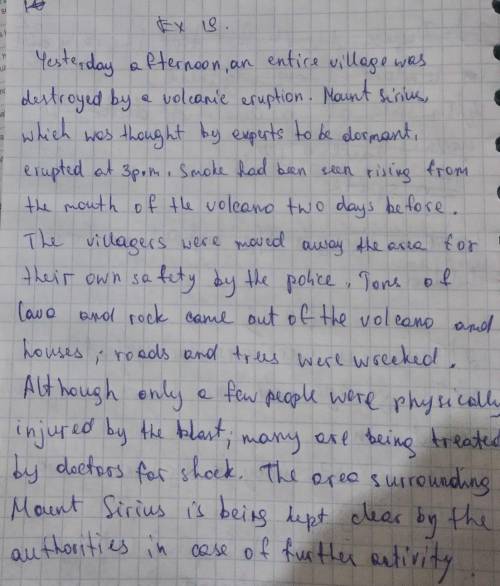 Ex 19.
Yesterday afternoon, an entire village was
destroyed by a volcanic eruption. Mount Sirius,
which was thought by experts to be dormant,
erupted at 3p.m. Smoke had been seen rising from
the mouth of the volcano two days before.
The villagers were moved away the area for
their own safety by the police. Tons of
lava and rock came out of the volcano and
houses, roads and trees were wrecked.
Although only a few people were physically
injured by the blast, many are being treated
by doctors for shock. The area surrounding
Mount Sirius is being kept clear by the
authorities in case of further activity